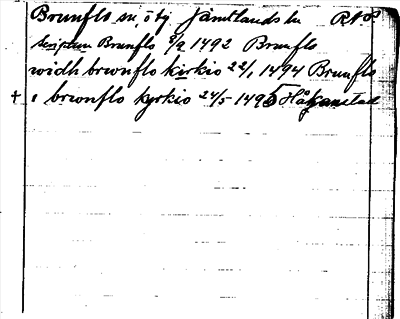 Brunflo sn, ö tg Jämtlands ln R No
scriptum Brunflo 8/2 1492 Brunflo
widh brwnflo kirkio 22/1 1494 Brunflo
+ i brwnflo kyrkio 24/5 1495 Håkanstad